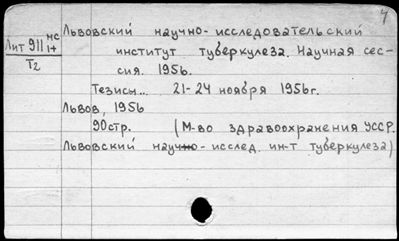 7
Лит 911 нс
1+
Т2
Львовский научно-исследовательский
институт туберкулеза. Научная сес-
сия. 1956.
Тезисы... 21-24 ноября 1956г.
Львов, 1956
90стр. (М-во здравоохранения УССР.
Львовский научно-исслед. ин-т туберкулеза)